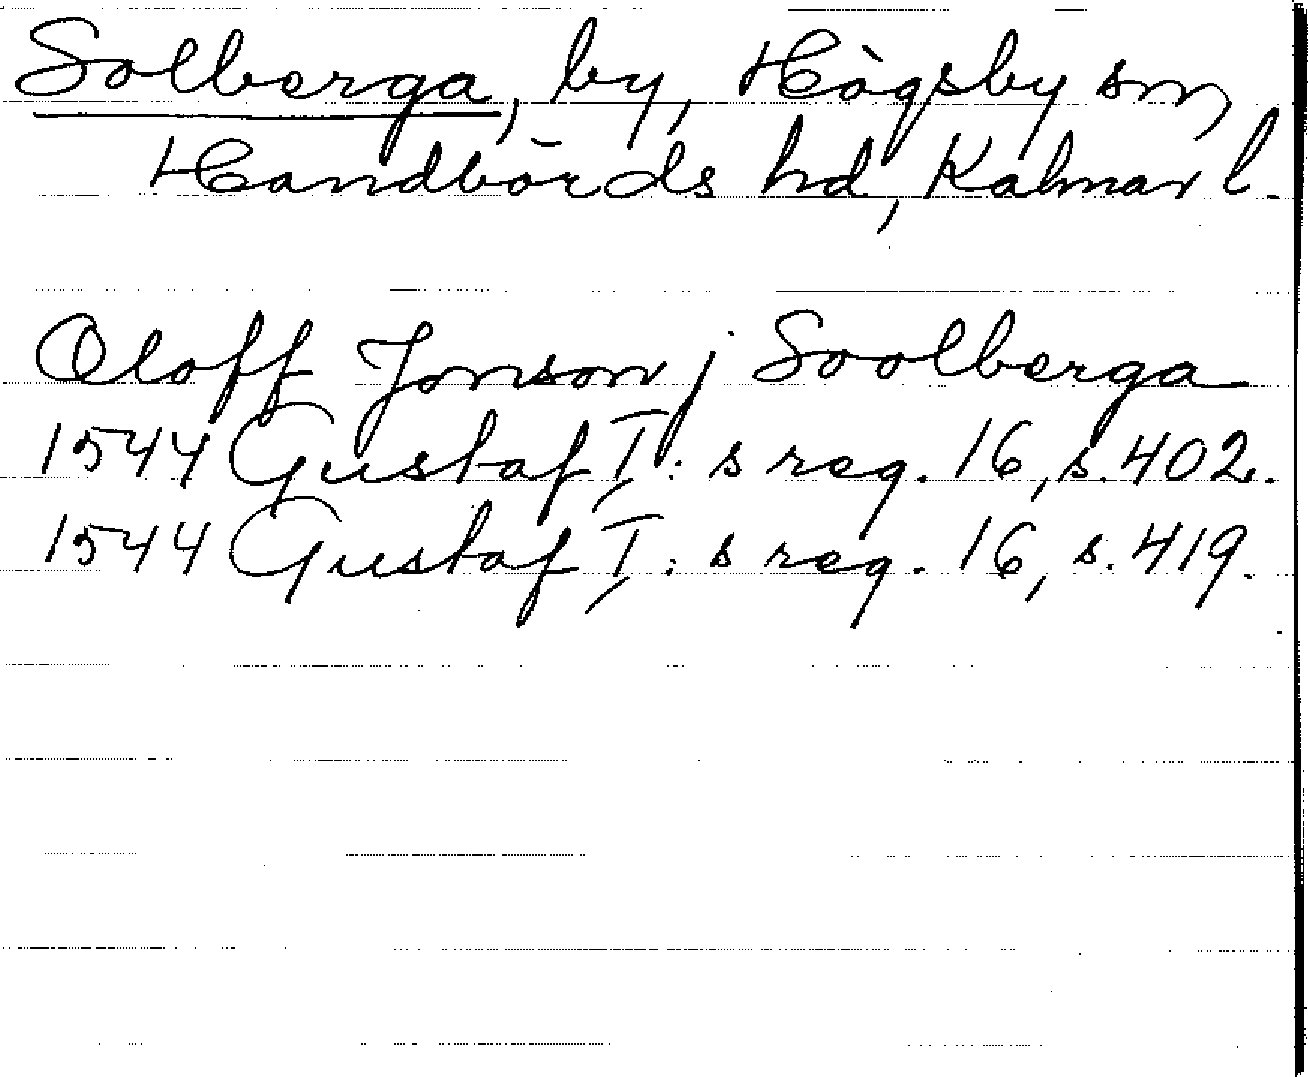 Solberga, by, Högsby sn
Handbörds hd, Kalmar l.
Oloff Jonson j Soolberga
1544 Gustaf I: s reg. 16, s. 402.
1544 Gustaf I: s reg. 16, s. 419.